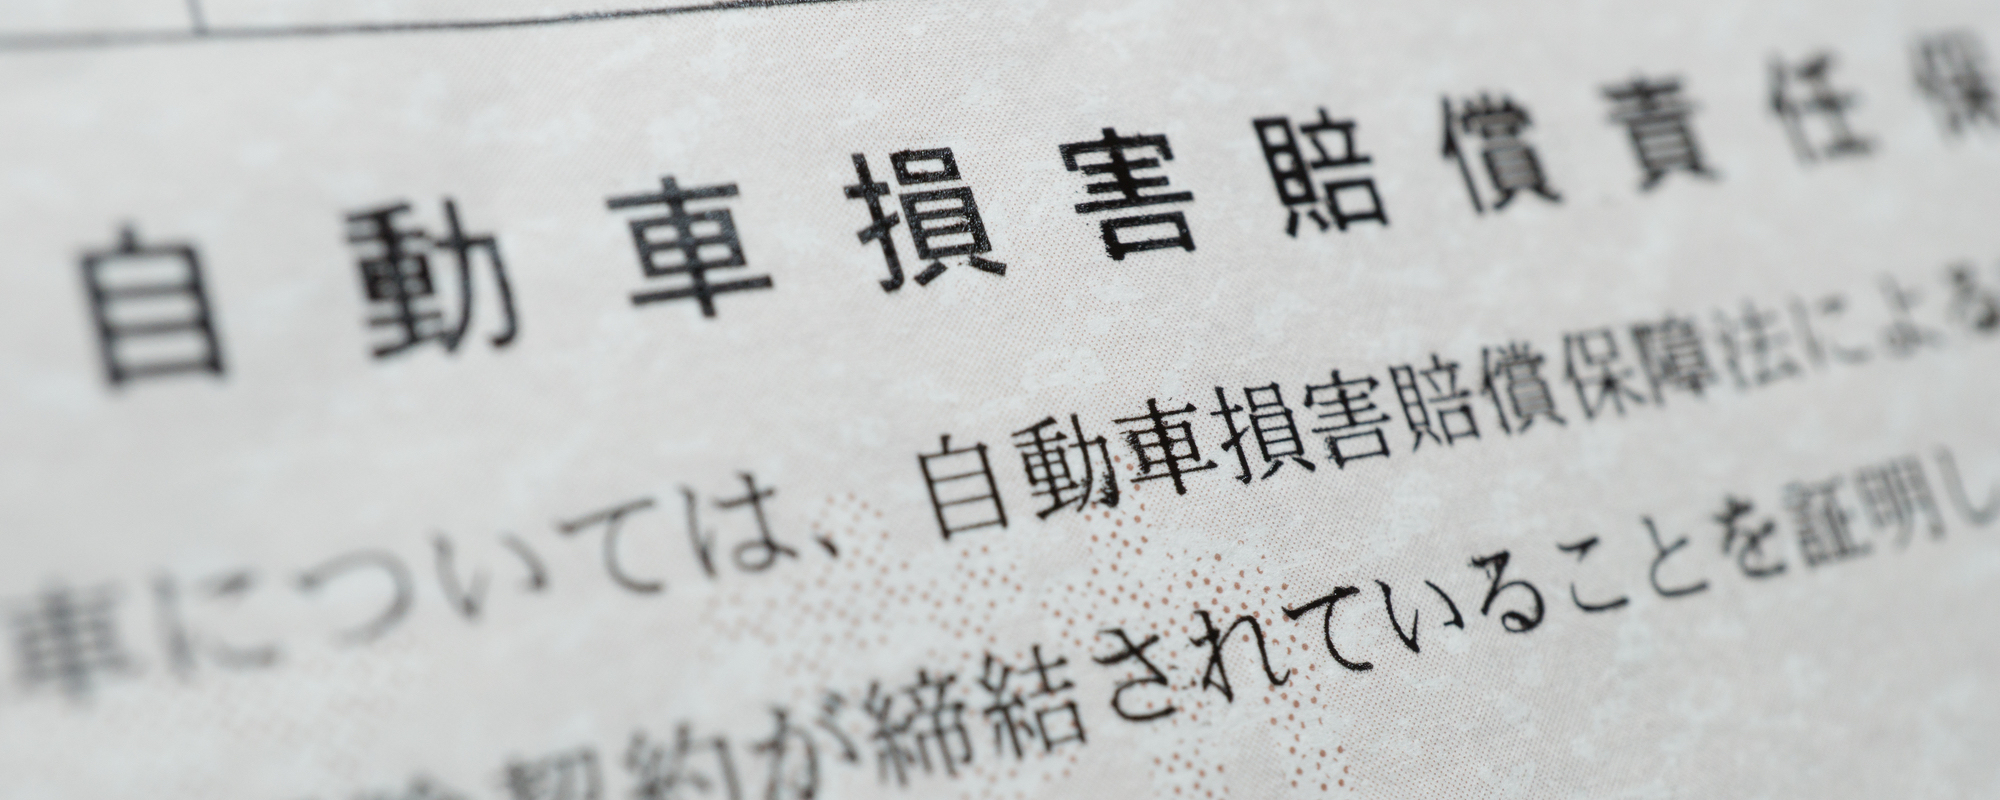 自動車損害賠償責任保
車については、自動車損害賠償保障法による
契約が締結されていることを証明し